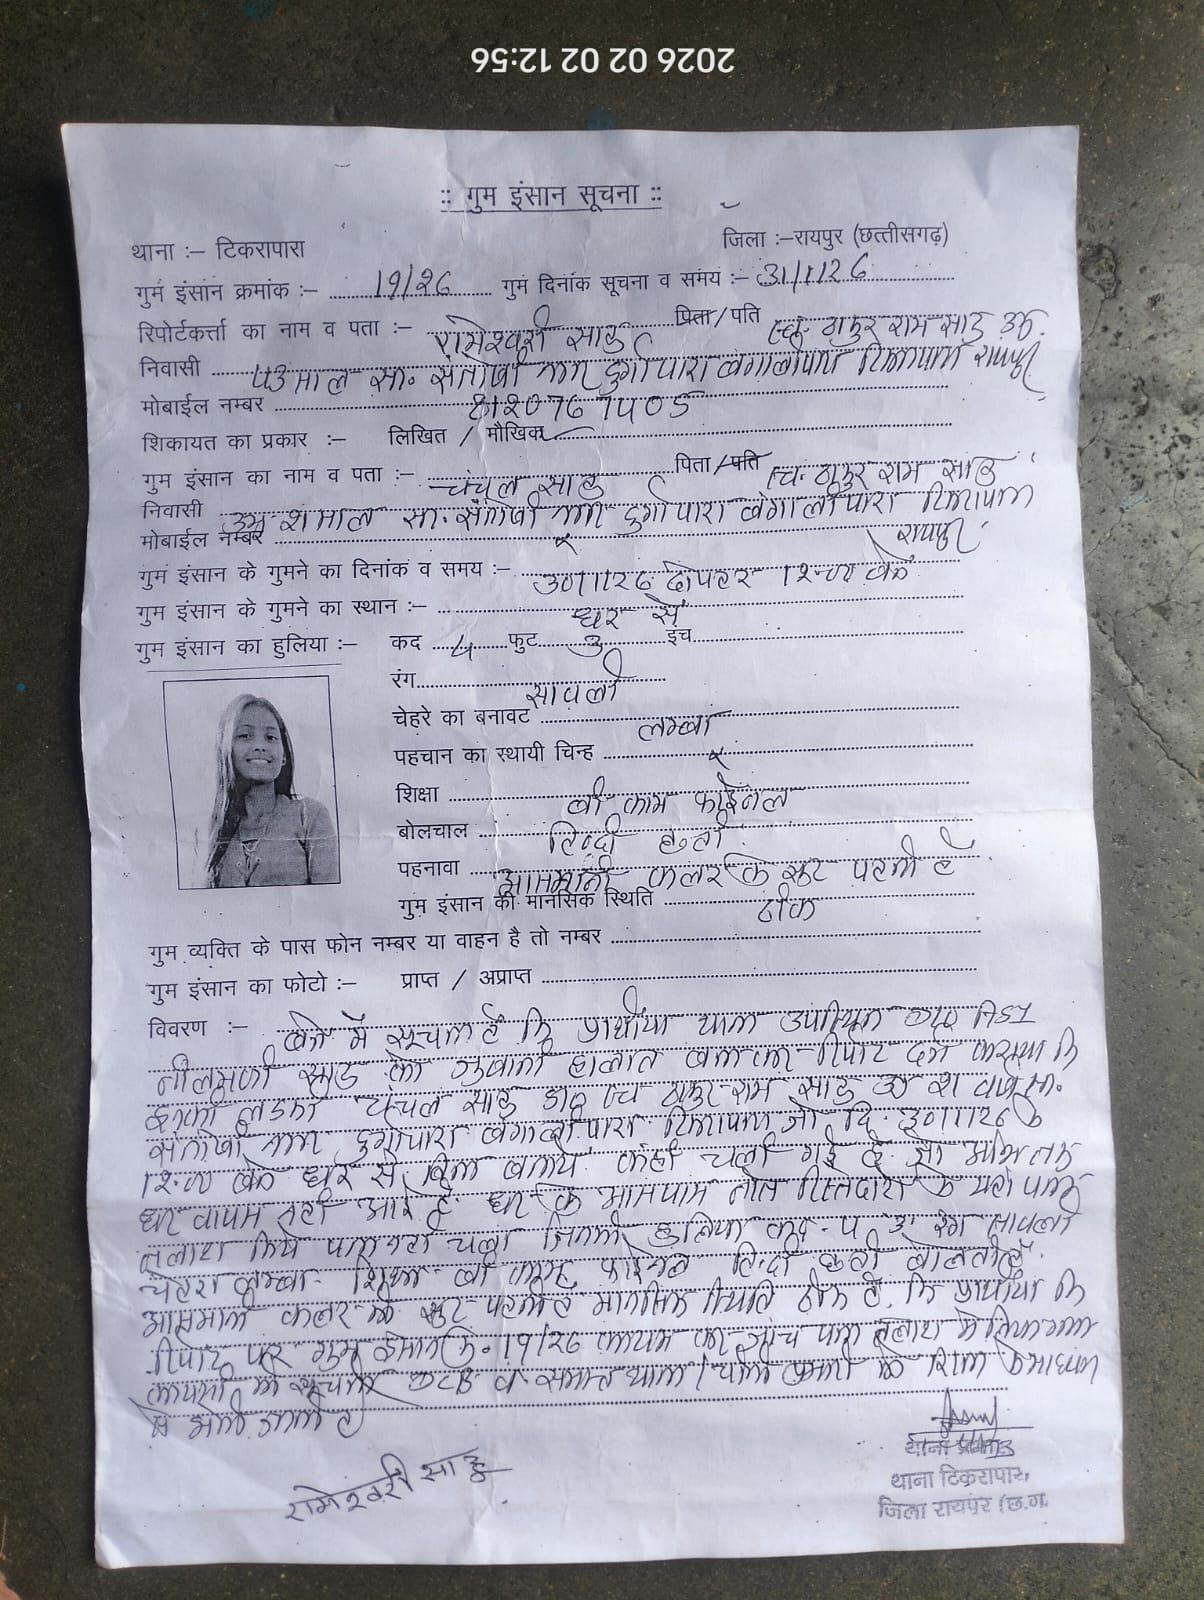 2026 02 02 12:56
:: गुम इंसान सूचना ::
थाना :– टिकरापारा जिला :–रायपुर (छत्तीसगढ़)
गुम इंसान क्रमांक :– 19/26 गुम दिनांक सूचना व समय :– 31/1/26
रिपोर्टकर्त्ता का नाम व पता :– रामेश्वरी साहू पिता/पति ठाकुर राम साहू उम्र
निवासी 43 साल सा. संतोषी नगर दुर्गापारा बंगालीपारा टिकरापारा रायपुर
मोबाईल नम्बर
शिकायत का प्रकार :– लिखित / मौखिक
गुम इंसान का नाम व पता :– चंचल साहू पिता/पति ठाकुर राम साहू
निवासी साल सा. संतोषी नगर दुर्गापारा बंगालीपारा टिकरापारा
मोबाईल नम्बर x रायपुर
गुम इंसान के गुमने का दिनांक व समय :– दोपहर 12:00 बजे
गुम इंसान के गुमने का स्थान :– घर से
गुम इंसान का हुलिया :– कद 4 फुट 3 इंच
रंग सावली
चेहरे का बनावट लम्बा
पहचान का स्थायी चिन्ह x
शिक्षा बी काम फाईनल
बोलचाल हिन्दी
पहनावा आसमानी कलर के सूट पहनी है
गुम इंसान की मानसिक स्थिति ठीक
गुम व्यक्ति के पास फोन नम्बर या वाहन है तो नम्बर
गुम इंसान का फोटो :– प्राप्त / अप्राप्त
विवरण :– में सूचना है कि प्रार्थीया थाना उपस्थित
साहू की जुबानी हालात बताकर रिपोर्ट दर्ज कराया कि
लडकी चंचल साहू ठाकुर राम साहू
संतोषी नगर दुर्गापारा बंगालीपारा टिकरापारा जो दि. के
12:00 बजे घर से बिना बताये कहीं चली गई है जो
घर वापस नहीं आई है घर के आसपास रिस्तेदारो के यहां
तलाश किये पता नहीं चला जिसकी हुलिया कद 4 3 रंग सावली
चेहरा लम्बा शिक्षा बी काम फाईनल हिन्दी बोलती है
आसमानी कलर के सूट पहनी है मानसिक स्थिति ठीक है कि प्रार्थीया कि
रिपोर्ट पर गुम इंसान क्र. 19/26 कायम कर जांच पता तलाश में लिया गया
कायमी की सूचना DCB व समस्त थाना
जाती है
रामेश्वरी साहू
थाना टिकरापारा,
जिला रायपुर (छ.ग.